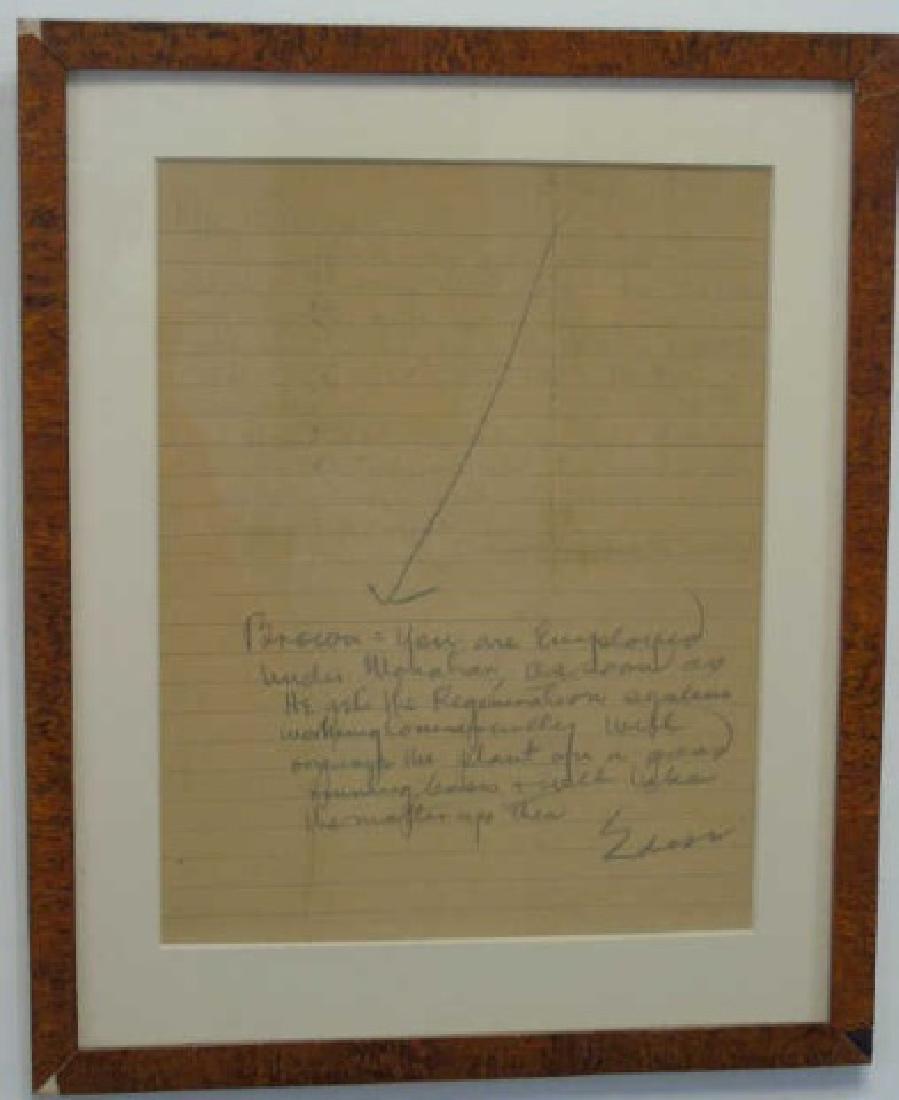 Brown = You are Employed
under Monahan, as soon as
He gets the Regeneration system
working commercially will
arrange the plant on a good
running basis & will take
the matter up then
Edison